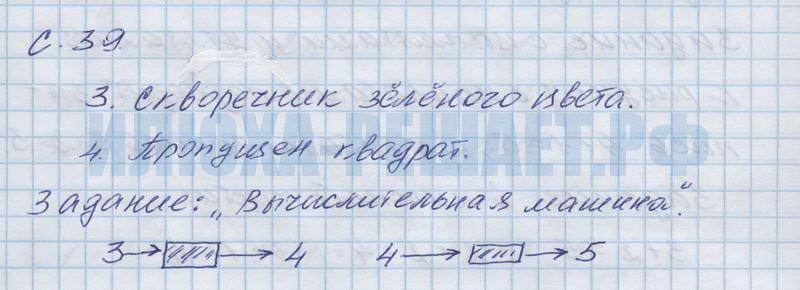 с. 39
3. Скворечник зелёного цвета.
4. Пропущен квадрат.
ИЛЮХА-РЕШАЕТ.РФ
Задание: „Вычислительная машина“.
3 → → 4 4 → → 5